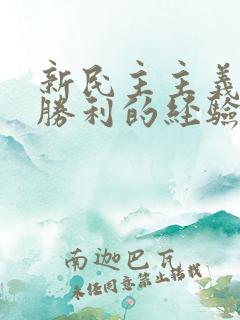 新民主主義
勝利的經驗
南迦巴瓦
未經同意禁止轉載